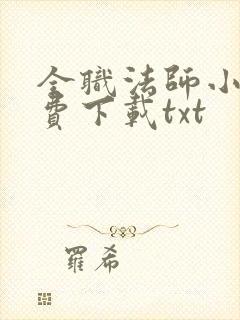 全職法師小
費下載txt
羅希